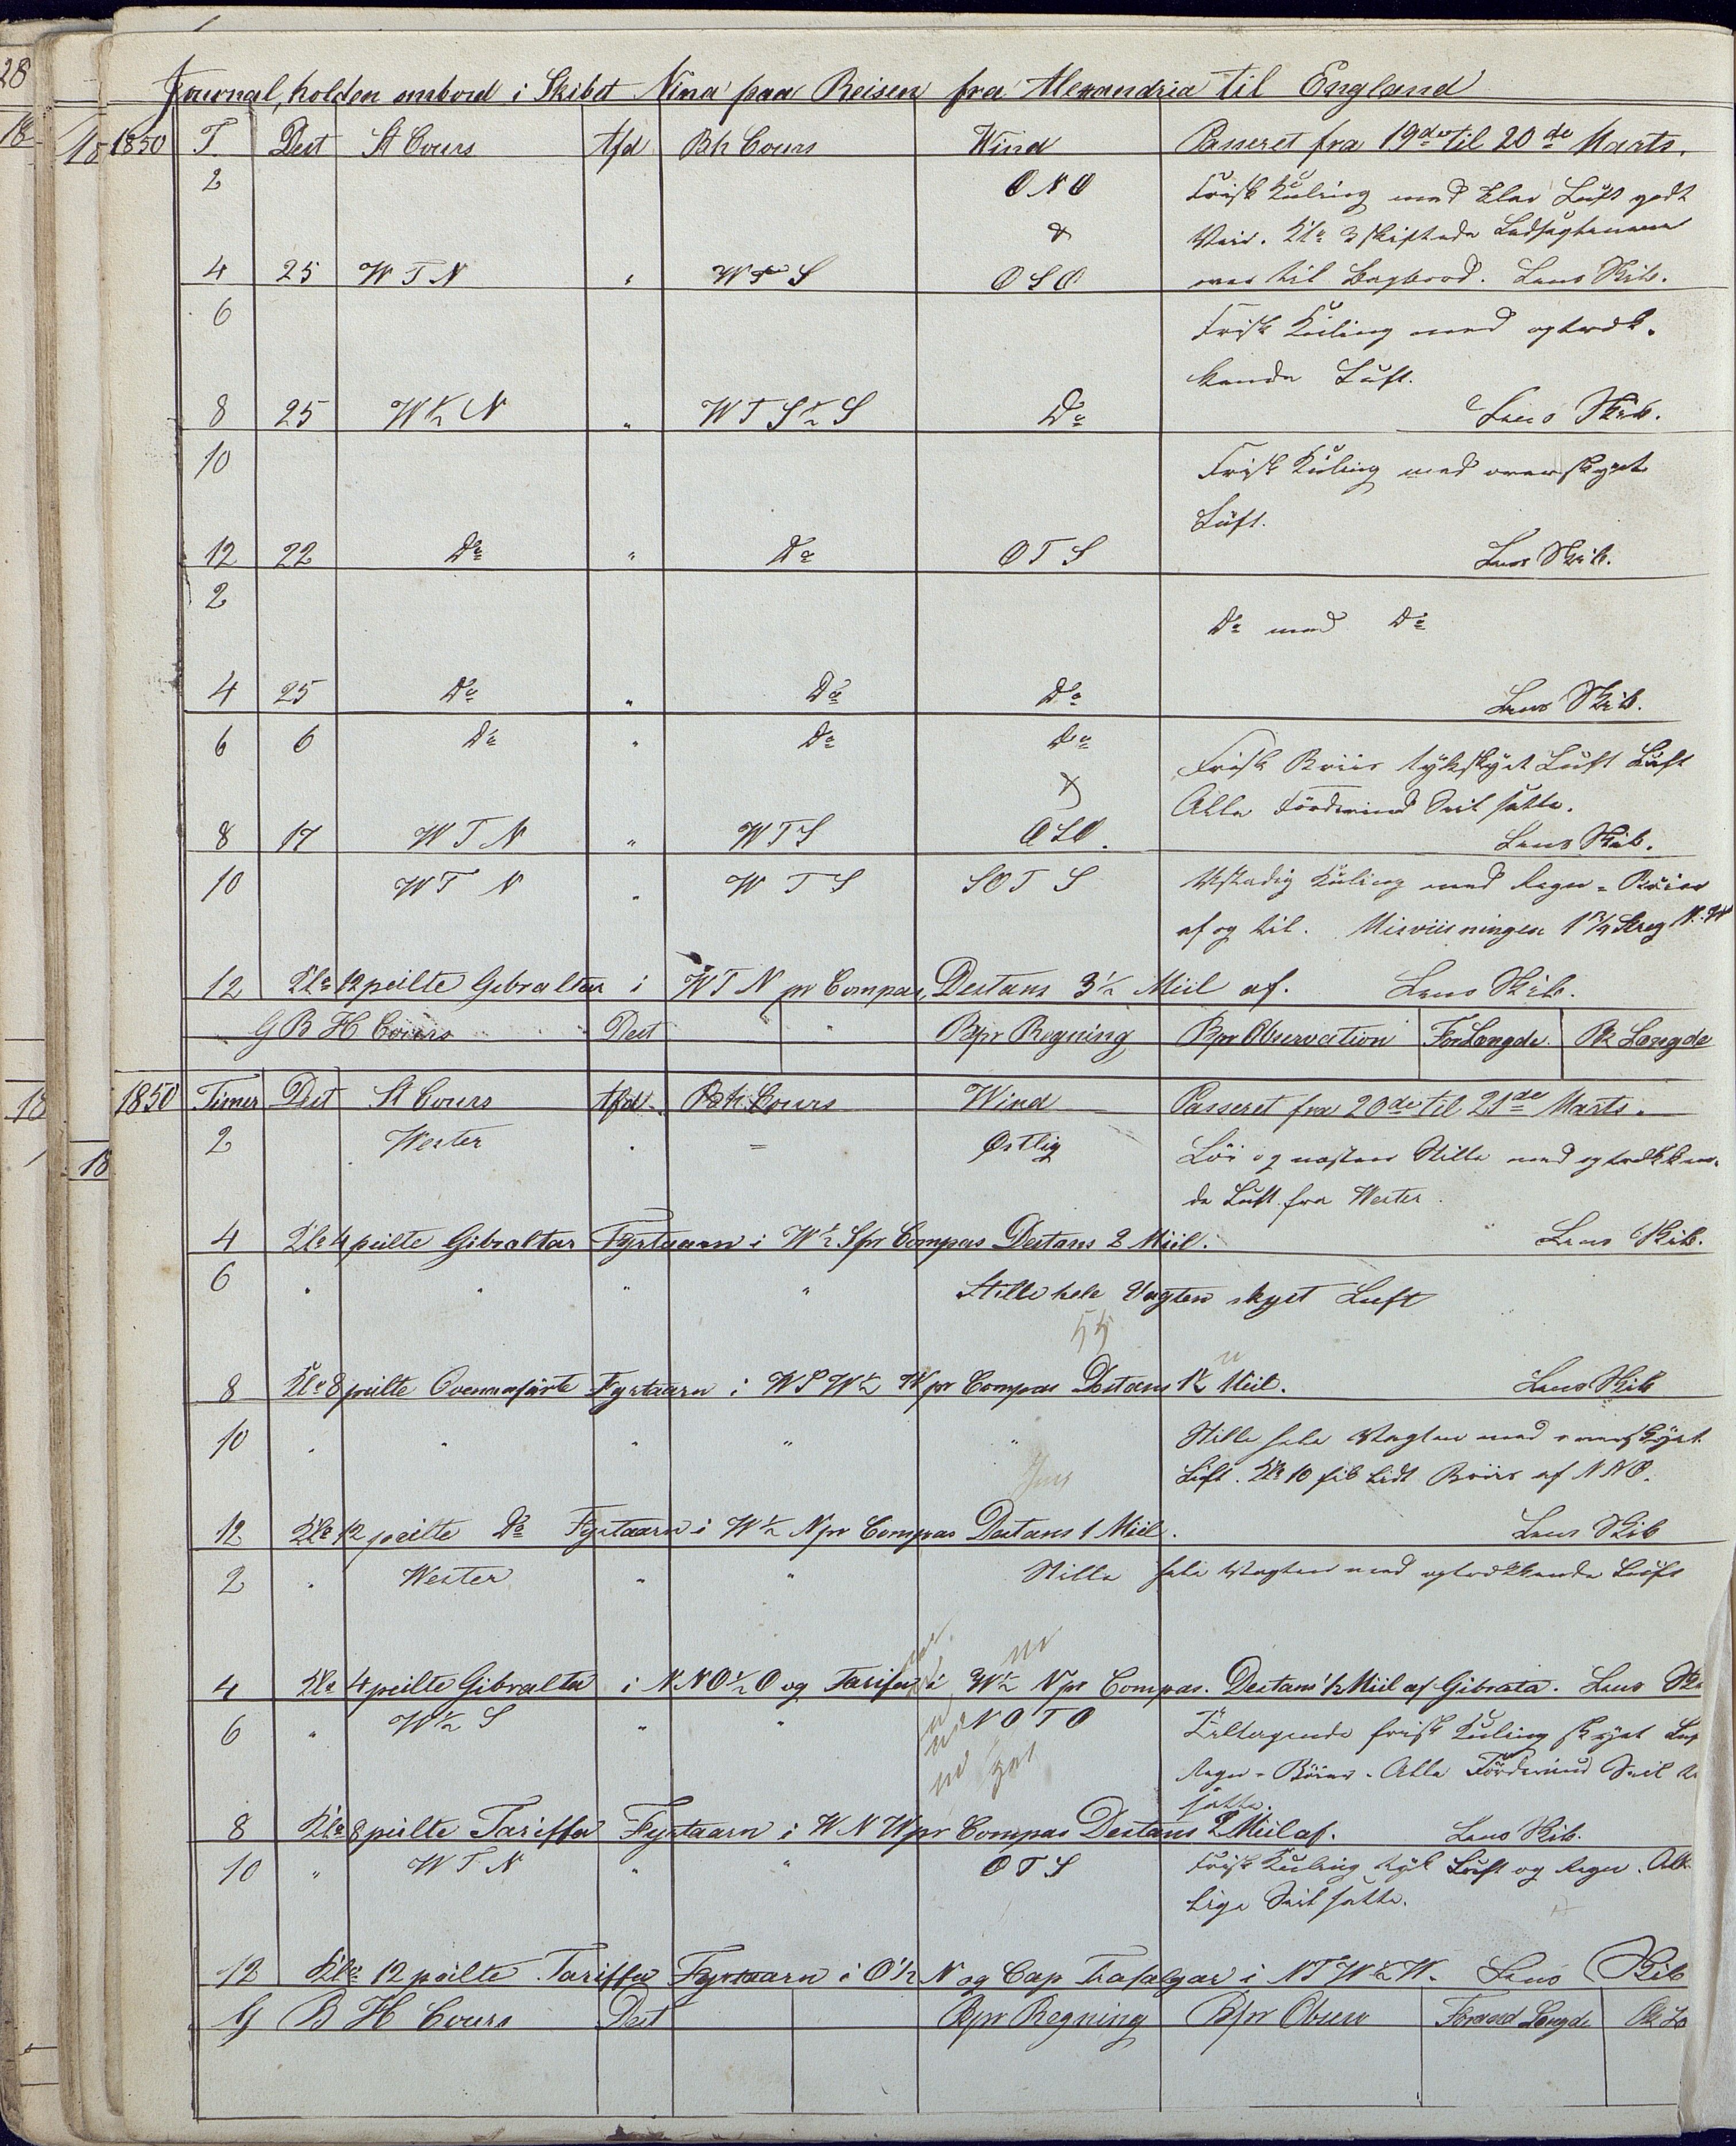 Journal, holden ombord i Skibet Nina paa Reisen fra Alexandria til England
1850 T. Dest St Cours Afd Bh Cours Wind Passeret fra 19de til 20de Marts.
2 ONO Frisk Kuling med klar Luft godt
& Veir. Klo 3 skiftede Ledseglene
4 25 WTN " WTS OSO over til Bagbord. Lens Skib.
6 Frisk Kuling med optræk-
kende Luft.
8 25 W½N " WTS½S Do Lens Skib.
10 Frisk Kuling med overskyet
Luft.
12 22 Do " Do OTS Lens Skib.
2 Do med Do
4 25 Do " Do Do Lens Skib.
6 6 Do " Do Do Frisk Briis tykskyet Luft Luft
& Alle Fördevind Seil satte.
8 17 WTN " WTS OSO. Lens Skib.
10 WTN " WTS SOTS Ustadig Kuling med Regn-Böier
af og til. Misviisningen 1¾ Streg N.W
12 Klo 12 peilte Gibraltar i WTN pr Compas, Destans 3½ Miil af. Lens Skib.
G B H Cours Dest Bpr Regning Bpr Observation For Længde Pk Længde
1850 Timer Dist St Cours Afd. Beh. Cours Wind Passeret fra 20de til 21de Marts.
2 Wester " = Østlig Löi og næsten Stille med optrækken-
de Luft fra Wester.
4 Klo 4 peilte Gibraltar Fyrtaarn i W½S pr Compas Destans 2 Miil. Lens Skib.
6 " " " " Stille hele Vagten skyet Luft
8 Klo 8 peilte Ovennanførte Fyrtaarn i WSW½W pr Compas Destans 1½ Miil. Lens Skib
10 " " " " " Stille hele Vagten med overskyet
Luft. Klo 10 fik lidt Briis af NNO.
12 Klo 12 peilte Do Fyrtaarn i W½N pr Compas Destans 1 Miil. Lens Skib
2 " Wester " " Stille hele Vagten med optrækkende Luft
4 Klo 4 peilte Gibralta i NNO½O og Tarifa i W½N pr Compas. Destans ½ Miil af Gibrata. Lens Sk
6 " W½S " " NOTO Tiltagende frisk Kuling skyet Luf
Regn-Böier. Alle Fördevind Seil
satte.
8 Klo 8 peilte Tariffa Fyrtaarn i WNW pr Compas Destans 2 Miil af. Lens Skib.
10 " WTN " " OTS Frisk Kuling tyk Luft og Regn. All
lige Seil satte.
12 Klo 12 peilte Tariffa Fyrtaarn i O½N og Cap Trafalgar i NTW½W. Lens Skib
G B H Cours Dest Bpr Regning Bpr Observ Forand Længde Pk Læ